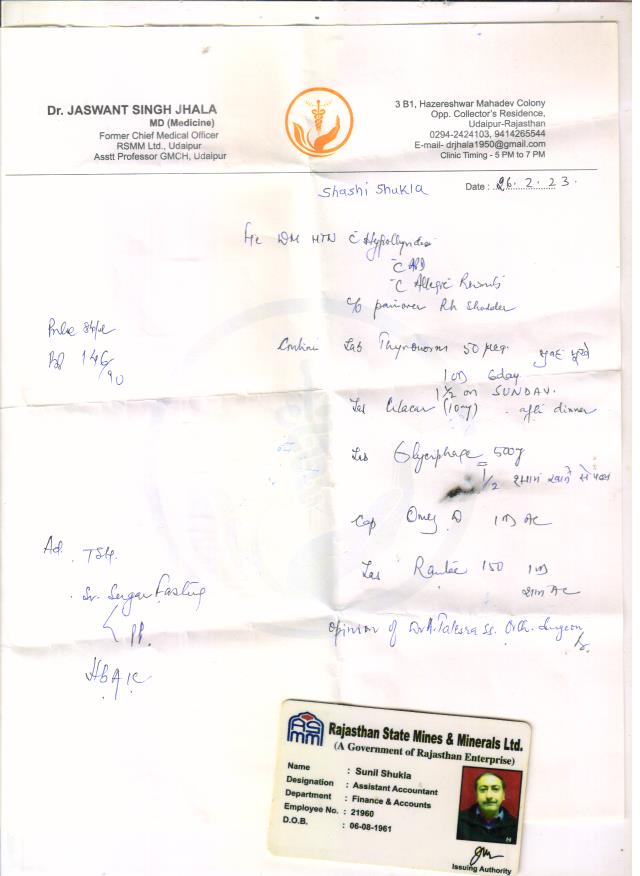 Dr. JASWANT SINGH JHALA
MD (Medicine)
Former Chief Medical Officer
RSMM Ltd., Udaipur
Asstt Professor GMCH, Udaipur
3 B1, Hazereshwar Mahadev Colony
Opp. Collector's Residence,
Udaipur-Rajasthan
0294-2424103, 9414265544
E-mail- drjhala1950@gmail.com
Clinic Timing - 5 PM to 7 PM
Shashi Shukla
Date : 26.2.23.
DM HTN c
c
c Allergic
c/o pain over Rh Shoulder
Pulse
BP 146/90
Tab Thyronorm 50 mcg. सुबह भूखे
1 OD 6 day
1 1/2 on SUNDAY.
Tab Cilacar (10mg) after dinner
Tab Glyciphage 500mg
1/2 शाम खाने से पहले
Cap Omez D 1 OD AC
Ad. TSH.
Tab Rantac 150 1 OD
शाम AC
Sr. Sugar Fasting
PP.
HBA1C
opinion of Dr. Orth. Surgeon
RSMM
Rajasthan State Mines & Minerals Ltd.
(A Government of Rajasthan Enterprise)
Name : Sunil Shukla
Designation : Assistant Accountant
Department : Finance & Accounts
Employee No. : 21960
D.O.B. : 06-08-1961
Issuing Authority